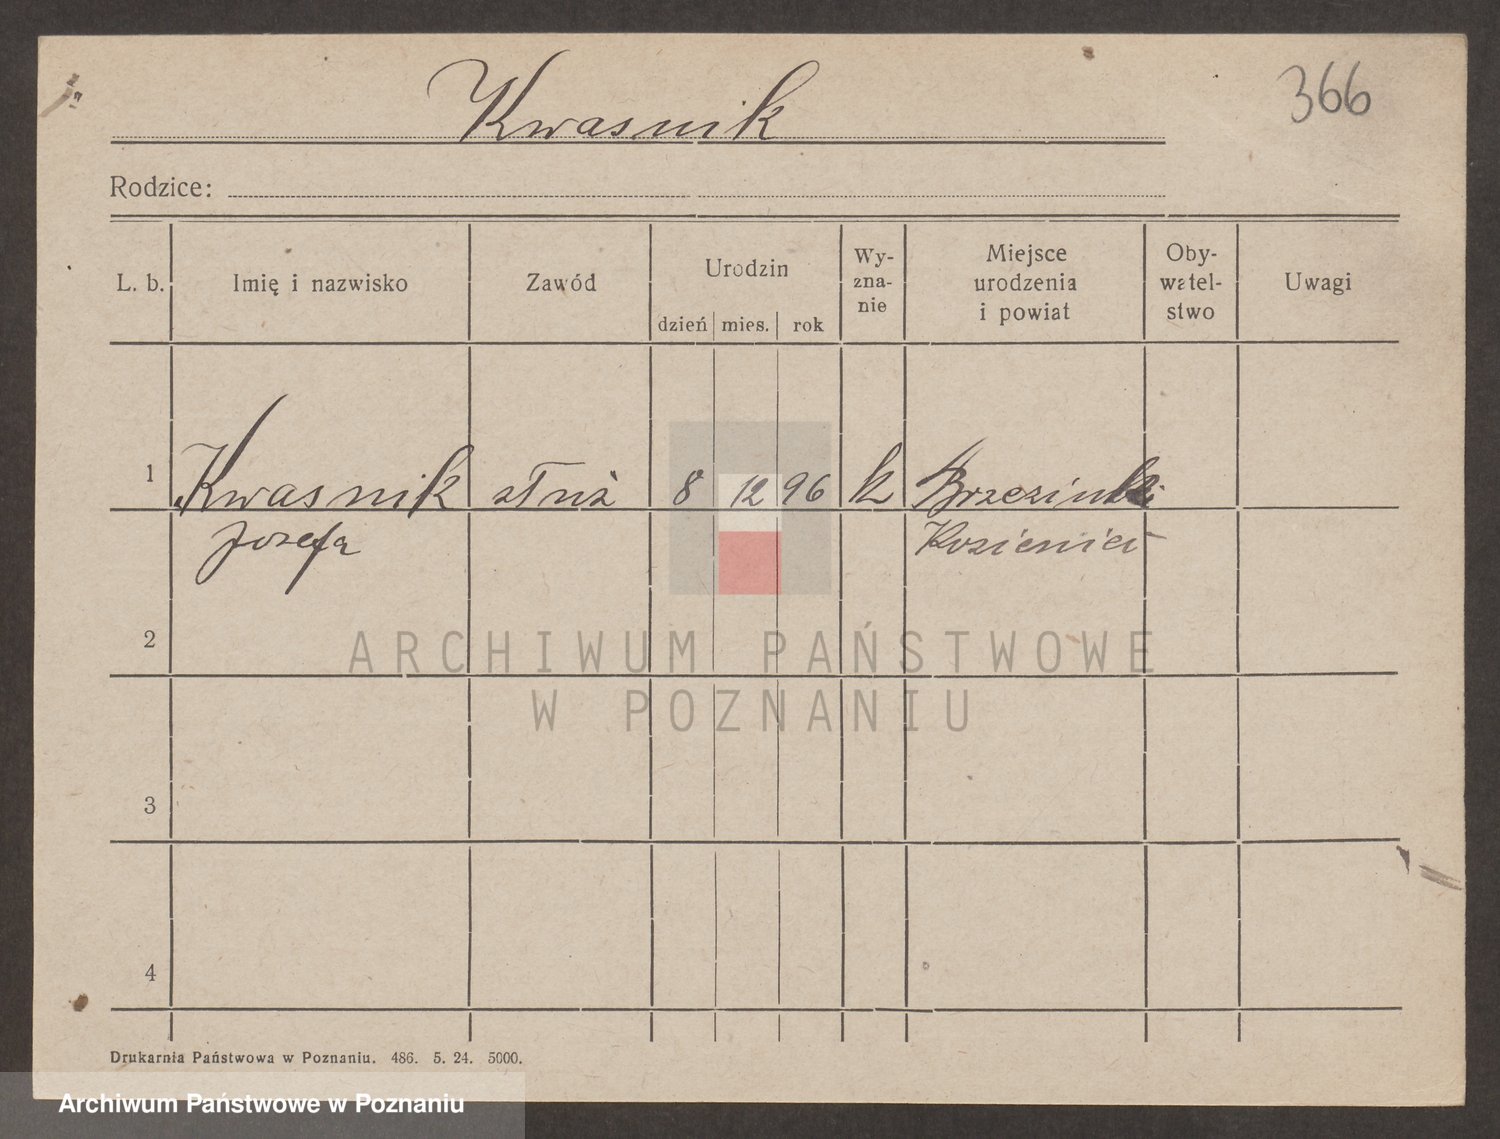 366
Kwasnik
Rodzice:
L. b. Imię i nazwisko Zawód Urodzin dzień mies. rok Wy-zna-nie Miejsce urodzenia i powiat Oby-watel-stwo Uwagi
1 Kwasnik służ 8 12 96 k Brzezinki
Josefa Kozienice
2
3
4
ARCHIWUM PAŃSTWOWE
W POZNANIU
Drukarnia Państwowa w Poznaniu. 486. 5. 24. 5000.
Archiwum Państwowe w Poznaniu